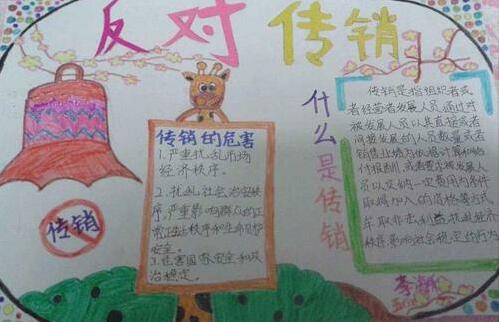 反对传销
传销的危害
1.严重扰乱市场
经济秩序。
2.扰乱社会治安秩
序,严重影响群众的正
常生活秩序和生命财产
安全。
3.危害国家安全和政
治稳定。
传销
什么是传销
传销是指组织者或
者经营者发展人员,通过对
被发展人员以其直接或者
间接发展的人员数量或者
销售业绩为依据计算和给
付报酬,或者要求被发展人
员以交纳一定费用为条件
取得加入的资格等方式
牟取非法利益,扰乱经济
秩序,影响社会稳定的行为
李